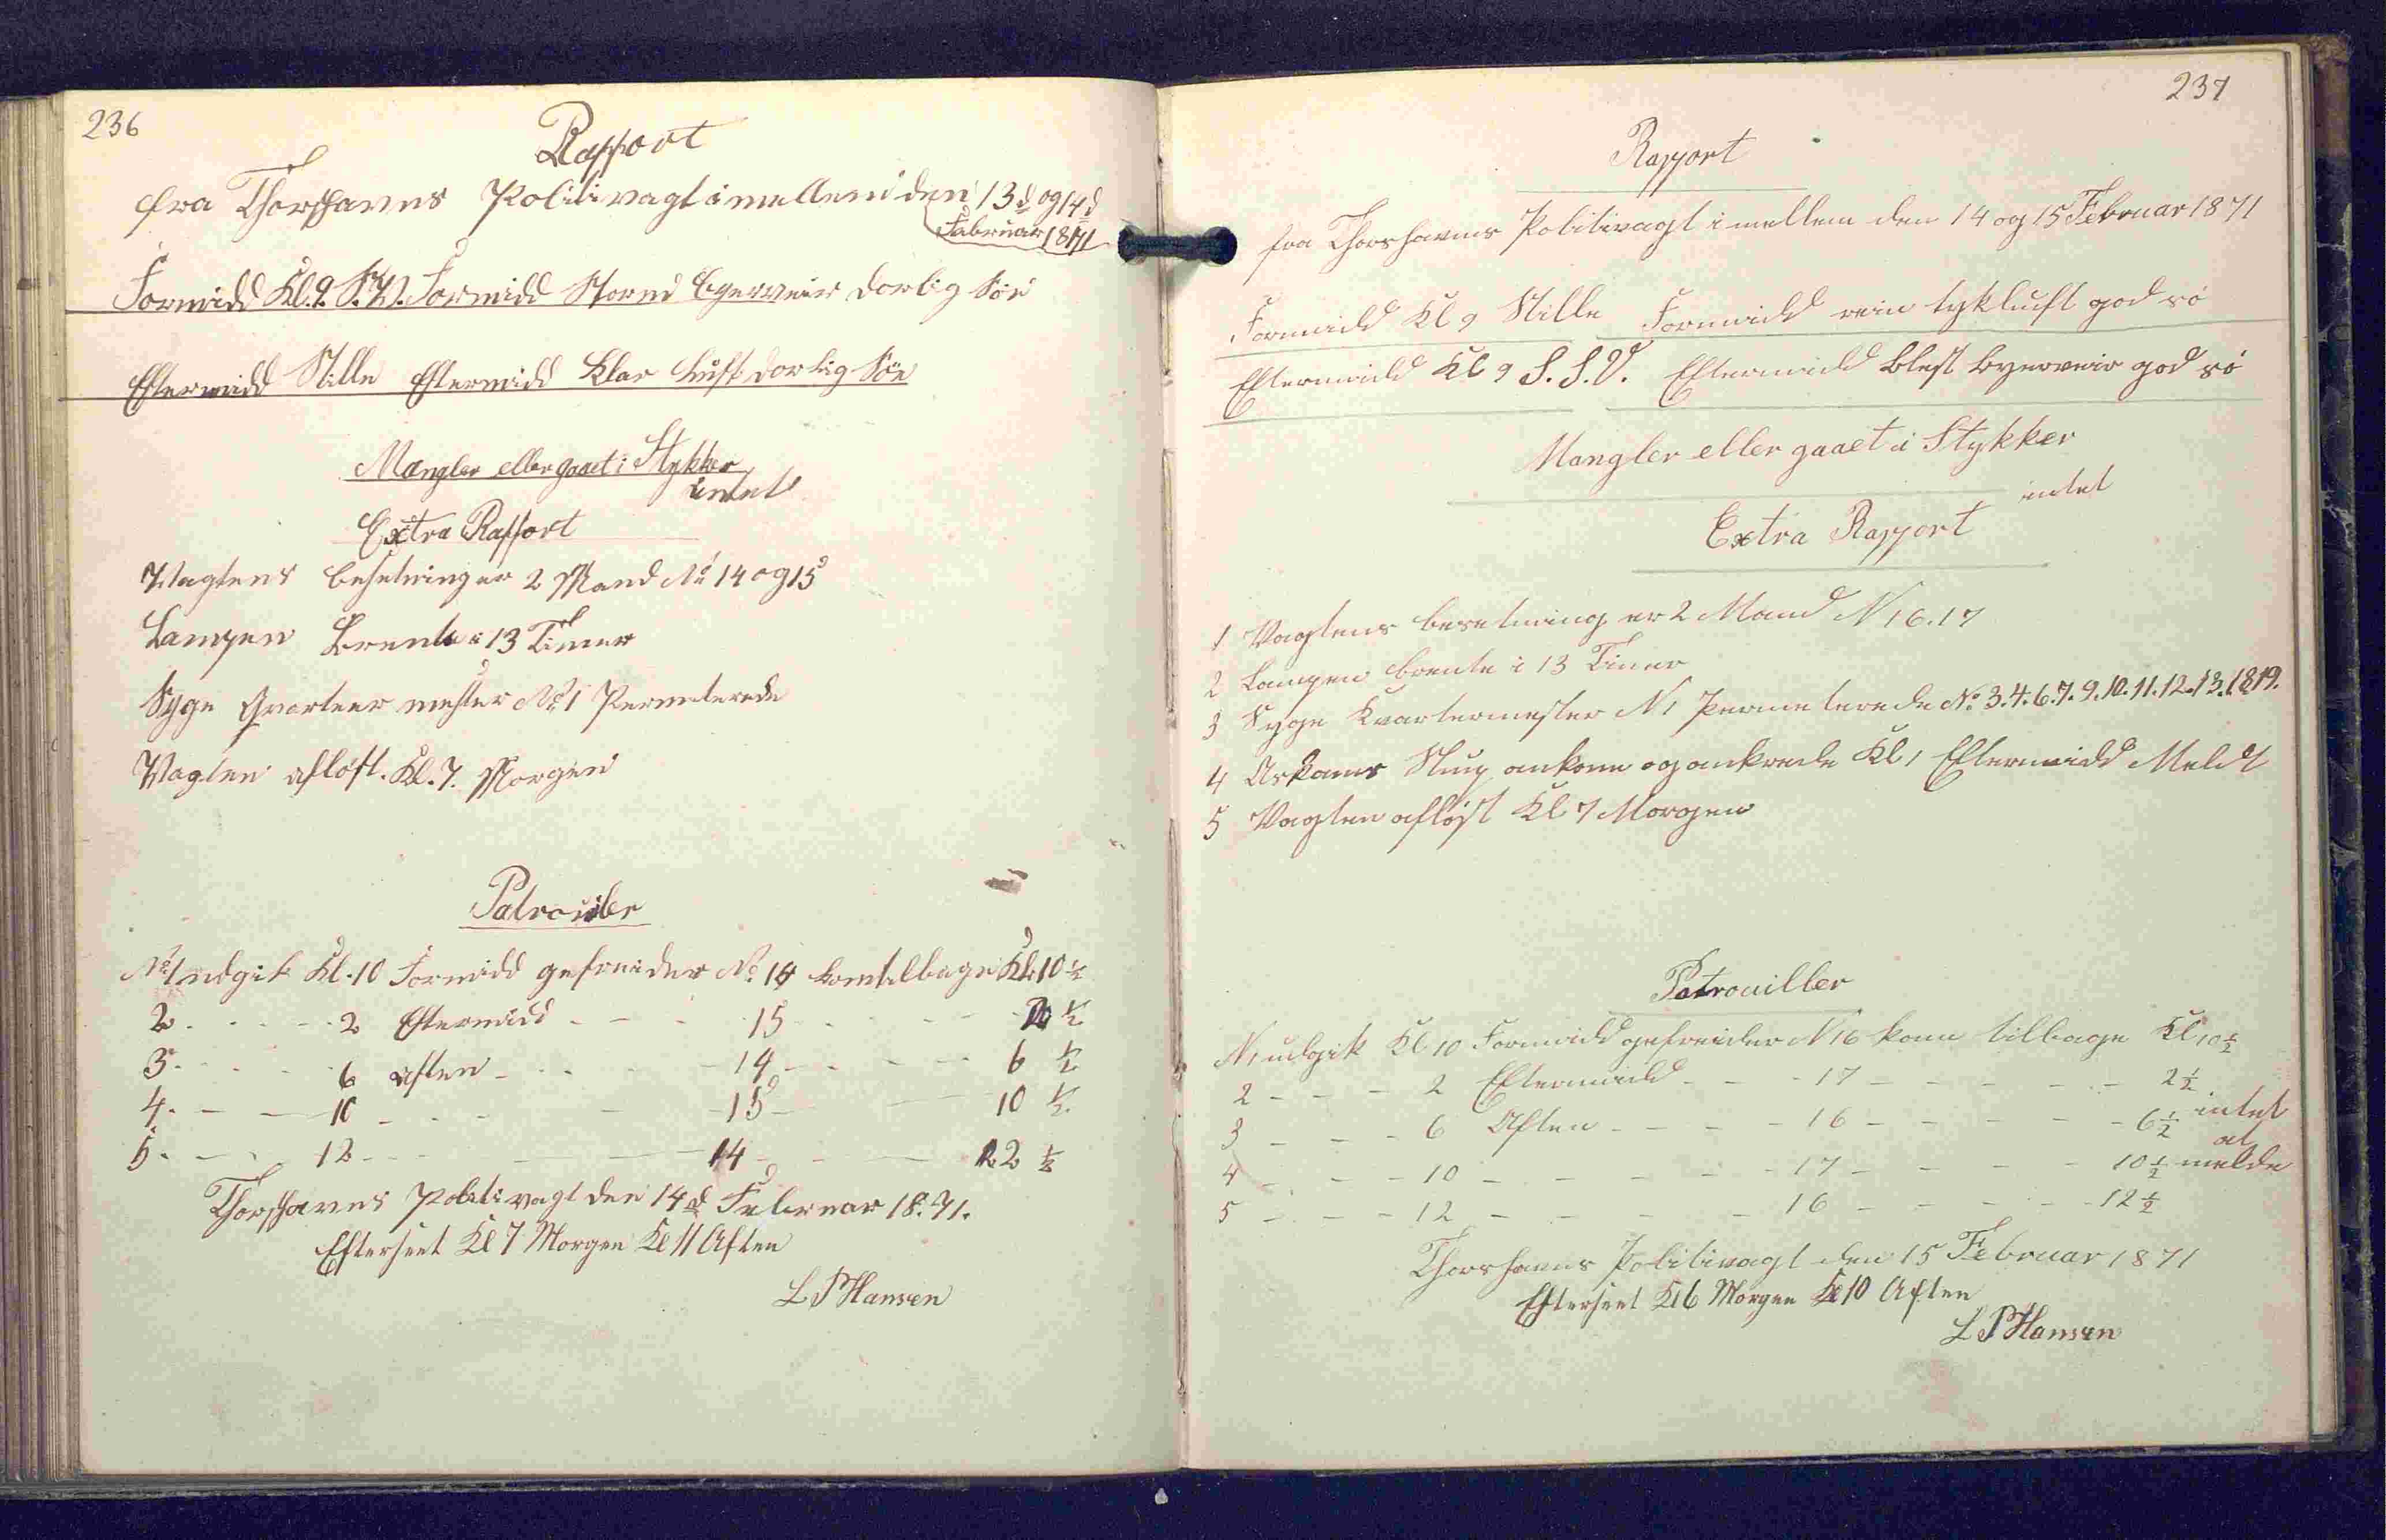 236
Rapport
fra Thorshavns Politivagt imellem den 13d og 14d
Februar 1871
Formidd Kl. 9. S.V. Formidd Storm Byerveir dorlig Söe
Eftermidd Stille Eftermidd Klar Luft dorlig Söe
Mangler eller gaaet i Stykker
intet
Extra Rapport
Vagtens besetning er 2 Mand No 14 og 15
Lampen Brente i 13 Timer
Syge Qvarteer mester No 1 Permeterede
Vagten afløst. Kl. 7. Morgen
Patrouiler
No 1 udgik Kl. 10 Formidd gefreider No. 14 kom tilbage Kl. 10 ½
2 - - - 2 Eftermidd - - - 15 - - - 2 ½
3 - - - 6 Aften - - - 14 - - - 6 ½
4. - - 10 - - - 15 - - - 10 ½
5. - - 12 - - - 14 - - - 12 ½
Thorshavns Politivagt den 14d Februar 18.71.
Efterseet Kl 7 Morgen Kl 11 Aften
L P Hansen
237
Rapport
fra Thorshavns Politivagt imellem den 14 og 15 Februar 1871
Formidd Kl 9 Stille Formidd rein tykluft god sö
Eftermidd Kl 9 S.S.V. Eftermidd Blest Byerveir god sö
Mangler eller gaaet i Stykker
intet
Extra Rapport
1 Vagtens besetning er 2 Mand N 16.17
2 Lampen brente i 13 Timer
3 Syge Kvartermester N 1 Permeterede No 3.4.6.7.9.10.11.12.13.18 19.
4 Slup ankom og ankrede Kl 1 Eftermidd Meldt
5 Vagten afløst Kl 7 Morgen
Patrouiller
N 1 udgik Kl 10 Formidd gefreider N 16 kom tilbage Kl 10 ½
2 - - - 2 Eftermidd - - - 17 - - - 2 ½
3 - - - 6 Aften - - - 16 - - - 6 ½ intet
4 - - - 10 - - - 17 - - - 10 ½ at melde
5 - - - 12 - - - 16 - - - 12 ½
Thorshavns Politivagt den 15 Februar 1871
Efterseet Kl 6 Morgen Kl 10 Aften
L P Hansen